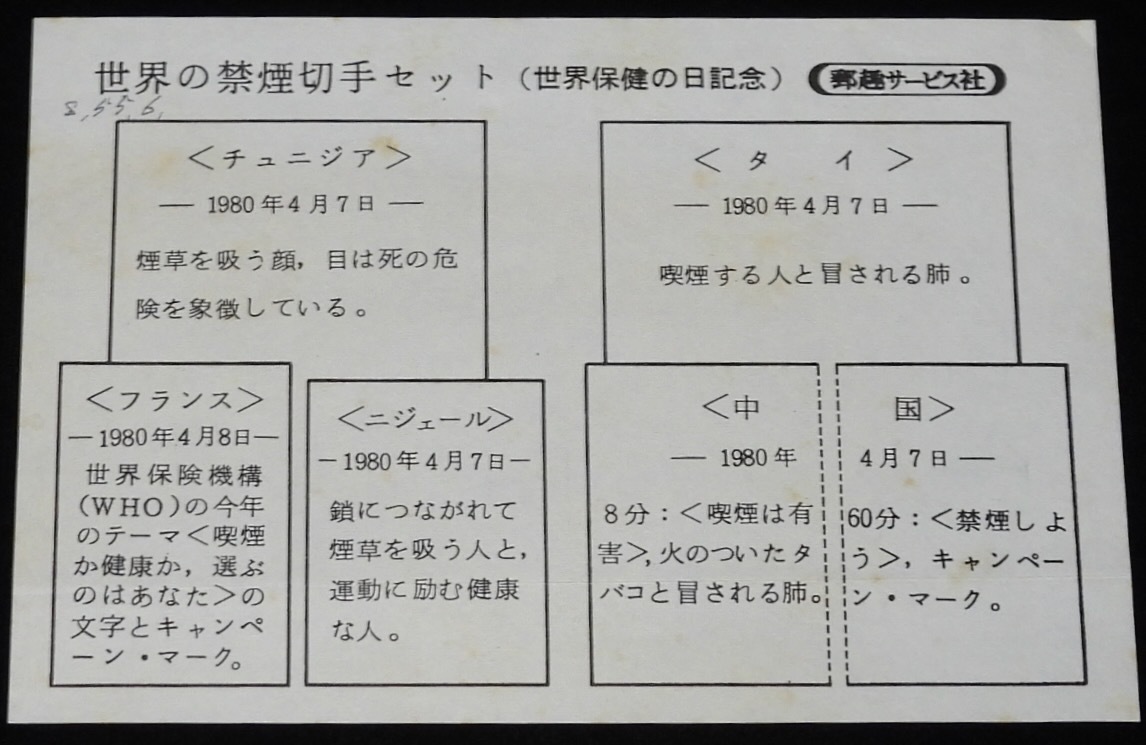 世界の禁煙切手セット（世界保健の日記念） 郵趣サービス社
8,55,6,
＜チュニジア＞
― 1980年4月7日 ―
煙草を吸う顔，目は死の危
険を象徴している。
＜タイ＞
― 1980年4月7日 ―
喫煙する人と冒される肺。
＜フランス＞
―1980年4月8日―
世界保険機構
(WHO)の今年
のテーマ＜喫煙
か健康か，選ぶ
のはあなた＞の
文字とキャンペ
ーン・マーク。
＜ニジェール＞
―1980年4月7日―
鎖につながれて
煙草を吸う人と，
運動に励む健康
な人。
＜中国＞
― 1980年4月7日 ―
8分：＜喫煙は有
害＞，火のついたタ
バコと冒される肺。
60分：＜禁煙しよ
う＞，キャンペー
ン・マーク。